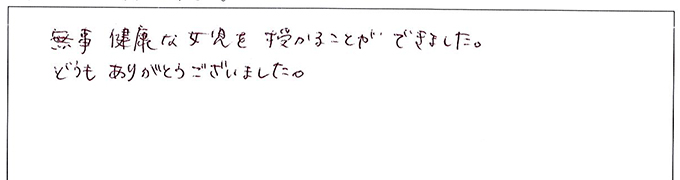 無事 健康な女児を 授かることが できました。
どうも ありがとうございました。